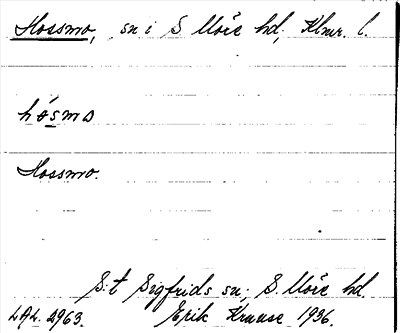 Hossmo, sn i S Möre hd, Klmr. l.
hósmo
Hossmo.
S:t Sigfrids sn; S. Möre hd.
LAL. 2963. Erik Krause 1936.